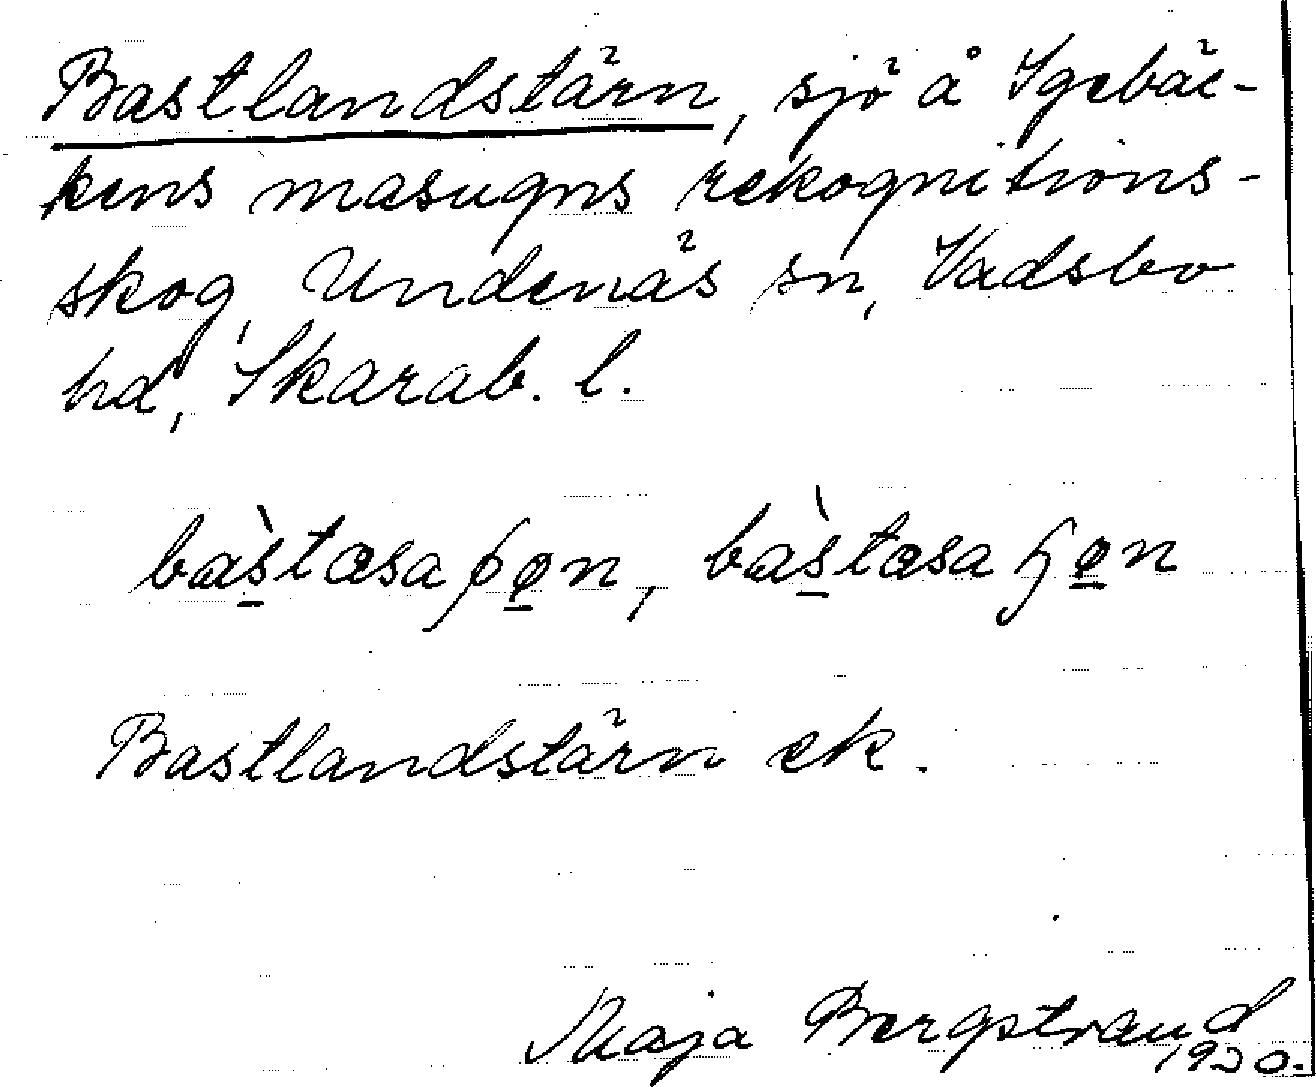 Bastlandstärn, sjö å Igebäc-
kens masugns rekognitions-
skog, Undenäs sn, Vadsbo
hd, Skarab. l.
Bastlandstärn ek.
Maja Bergstrand
1920.